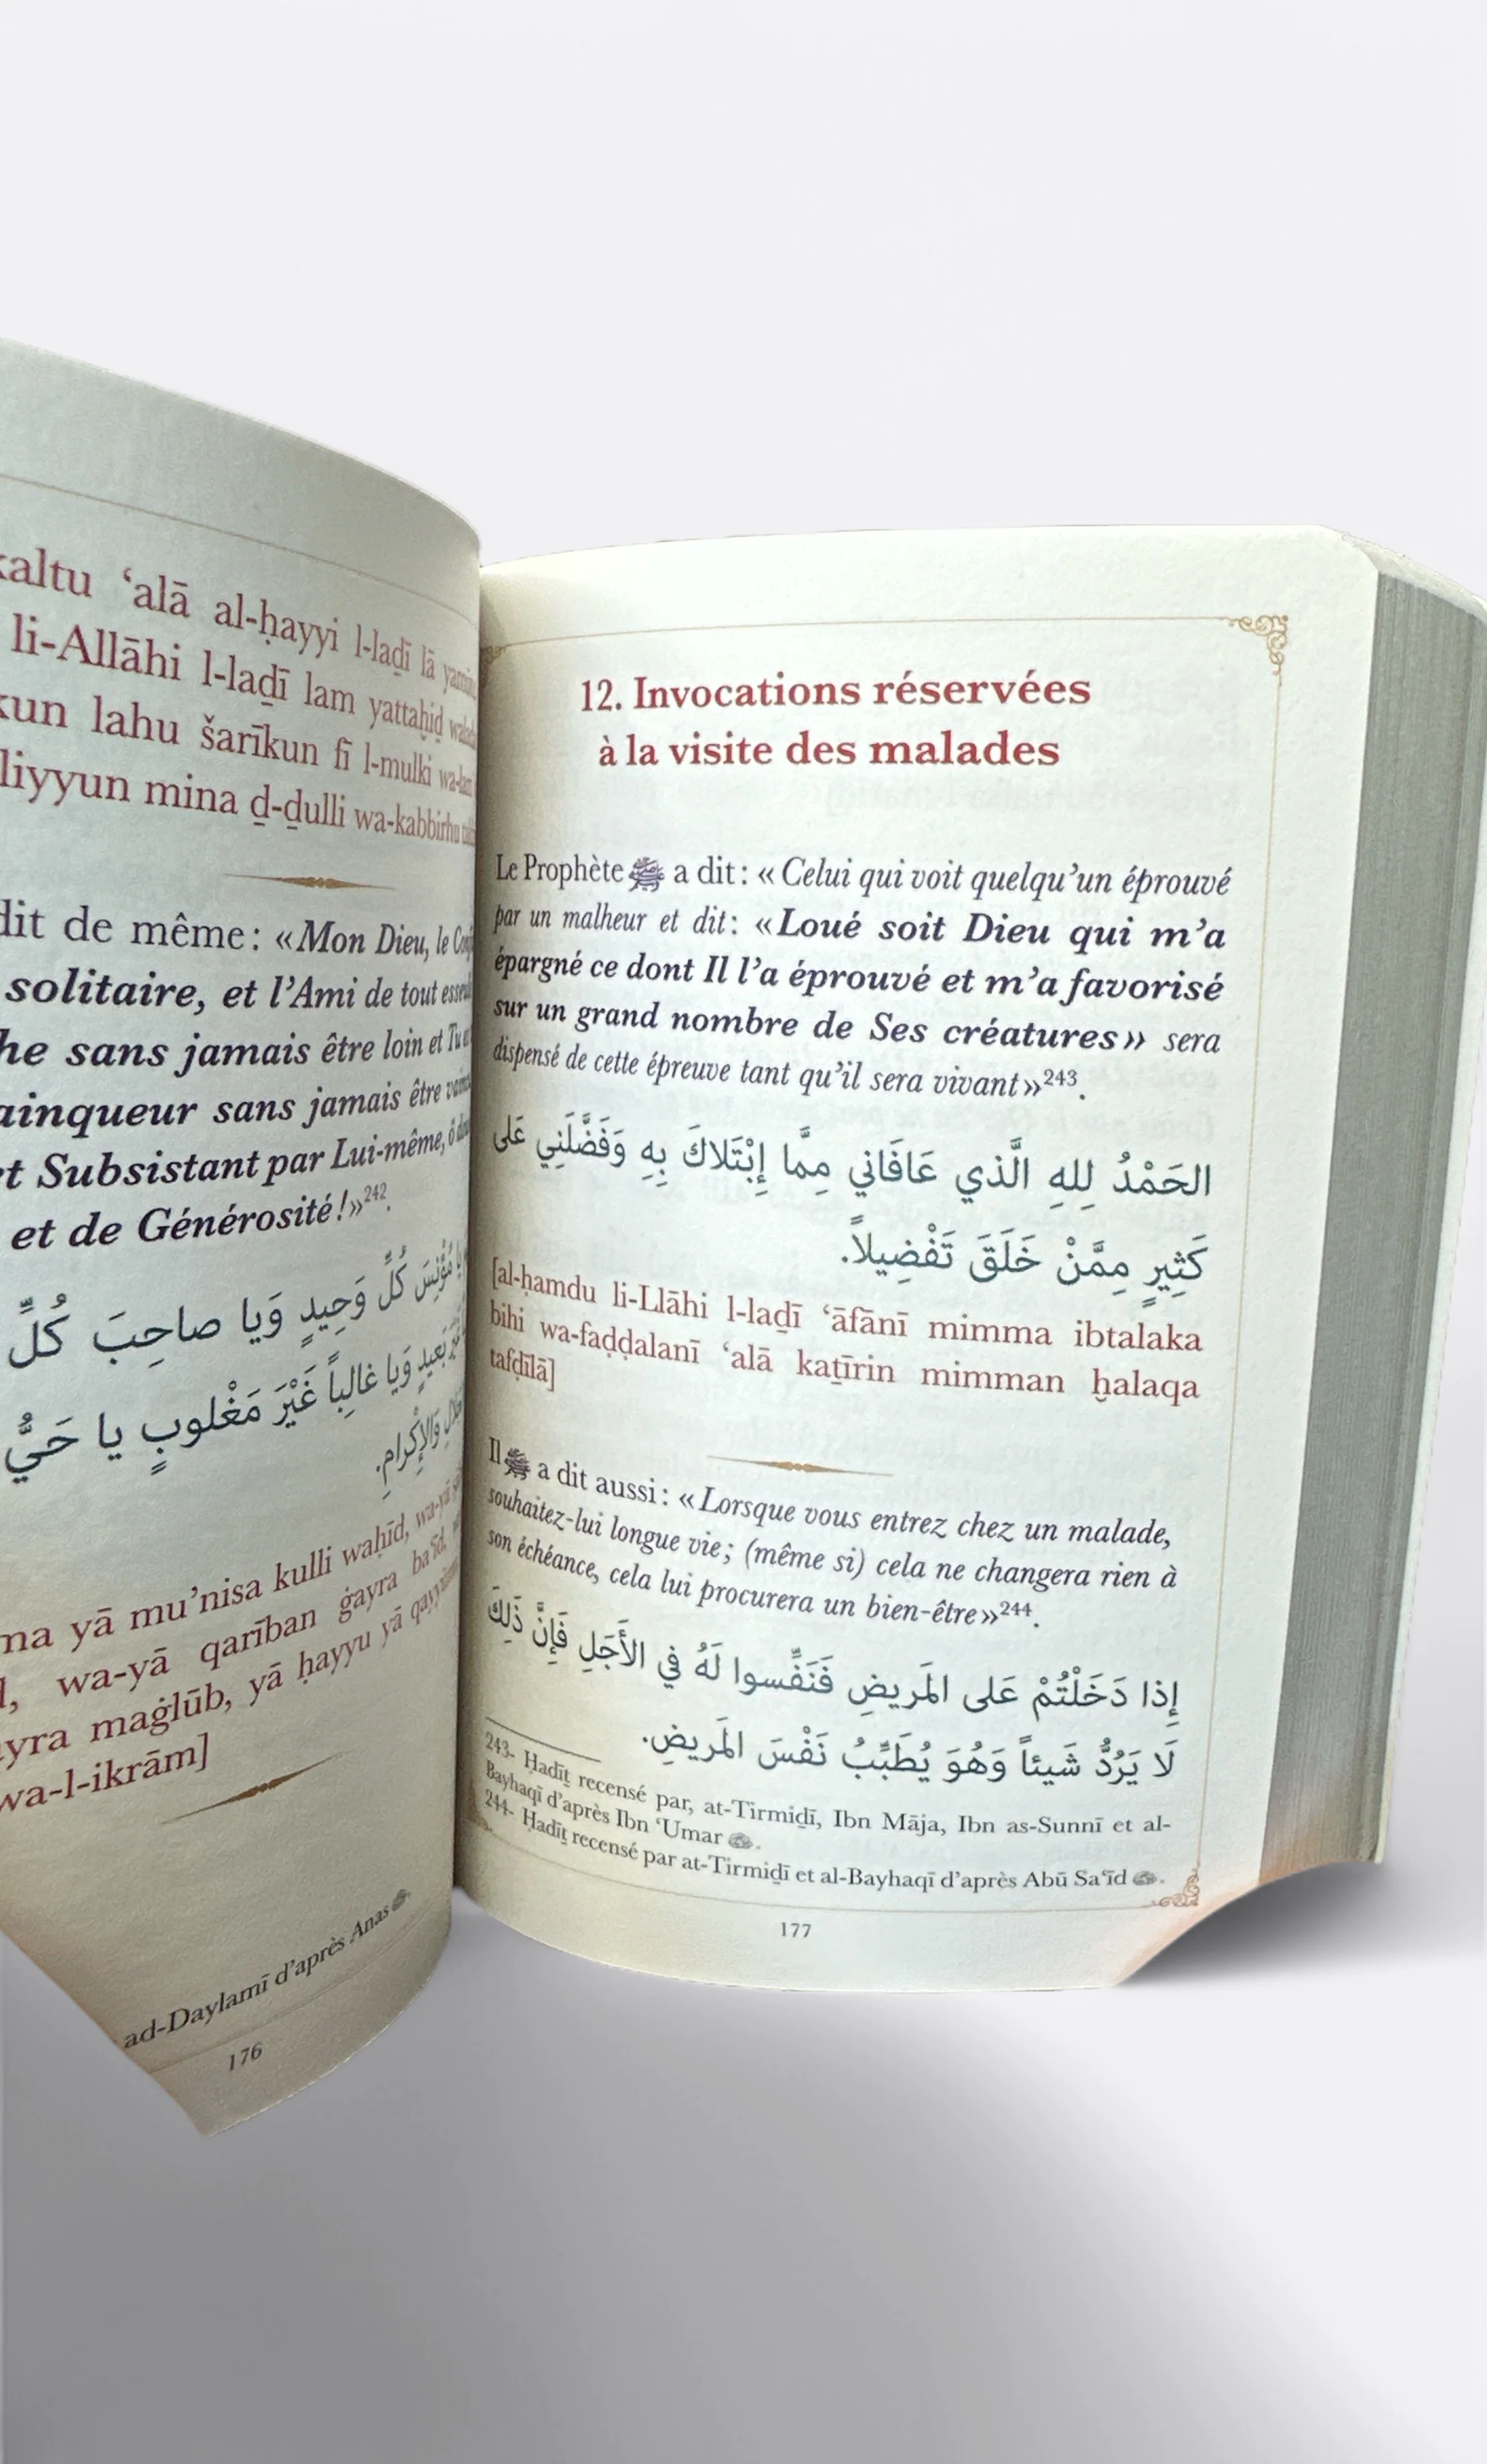 ‘alā al-ḥayyi l-laḏī lā
li-Allāhi l-laḏī lam yattaḫiḏ
lahu šarīkun fī l-mulki
mina ḏ-ḏulli wa-kabbirhu
dit de même : «Mon Dieu, le
solitaire, et l’Ami de tout
sans jamais être loin et Tu
sans jamais être
Subsistant par Lui-même, ô
et de Générosité !»²⁴².
مُؤْنِسَ كُلِّ وَحِيدٍ وَيا صاحِبَ كُلِّ
بَعِيدٍ وَيا غالِباً غَيْرَ مَغْلوبٍ يا حَيُّ
وَالإِكْرامِ.
yā mu’nisa kulli waḥīd, wa-yā
wa-yā qarīban ġayra ba‘īd,
maġlūb, yā ḥayyu yā
wa-l-ikrām]
ad-Daylamī d’après Anas
176
12. Invocations réservées
à la visite des malades
Le Prophète ﷺ a dit : « Celui qui voit quelqu’un éprouvé
par un malheur et dit : «Loué soit Dieu qui m’a
épargné ce dont Il l’a éprouvé et m’a favorisé
sur un grand nombre de Ses créatures» sera
dispensé de cette épreuve tant qu’il sera vivant»²⁴³.
الحَمْدُ لِلهِ الَّذي عَافَاني مِمَّا إِبْتَلاكَ بِهِ وَفَضَّلَنِي عَلى
كَثِيرٍ مِمَّنْ خَلَقَ تَفْضِيلاً.
[al-ḥamdu li-Llāhi l-laḏī ‘āfānī mimma ibtalaka
bihi wa-faḍḍalanī ‘alā kaṯīrin mimman ḫalaqa
tafḍīlā]
Il ﷺ a dit aussi : « Lorsque vous entrez chez un malade,
souhaitez-lui longue vie ; (même si) cela ne changera rien à
son échéance, cela lui procurera un bien-être»²⁴⁴.
إِذا دَخَلْتُمْ عَلى المَريضِ فَنَفِّسوا لَهُ في الأَجَلِ فَإِنَّ ذَلِكَ
لَا يَرُدُّ شَيئاً وَهُوَ يُطَبِّبُ نَفْسَ المَريضِ.
243- Ḥadīṯ recensé par, at-Tirmiḏī, Ibn Māja, Ibn as-Sunnī et al-
Bayhaqī d’après Ibn ‘Umar .
244- Ḥadīṯ recensé par at-Tirmiḏī et al-Bayhaqī d’après Abū Sa‘īd .
177